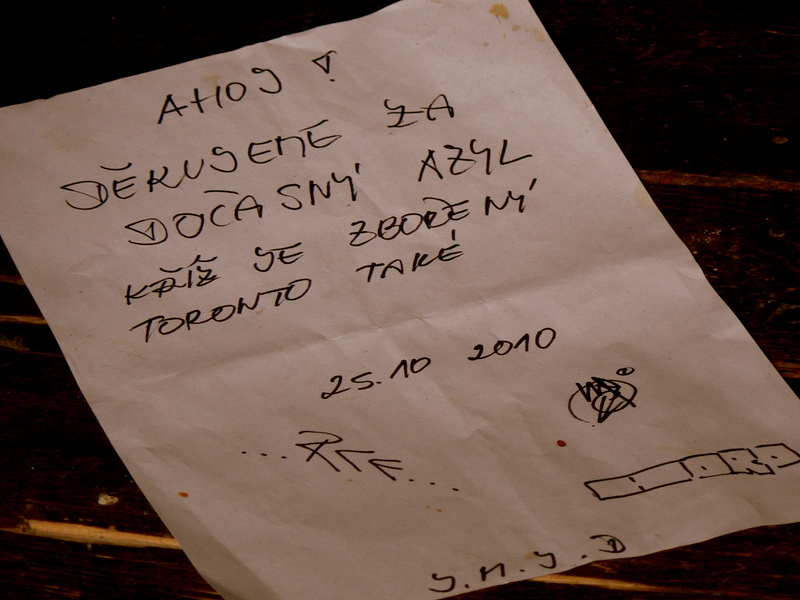 AHOJ !
DĚKUJEME ZA
DOČASNÝ AZYL
KŘÍŽ JE ZBOŘENÝ
TORONTO TAKÉ
25.10 2010
J.M.J.D